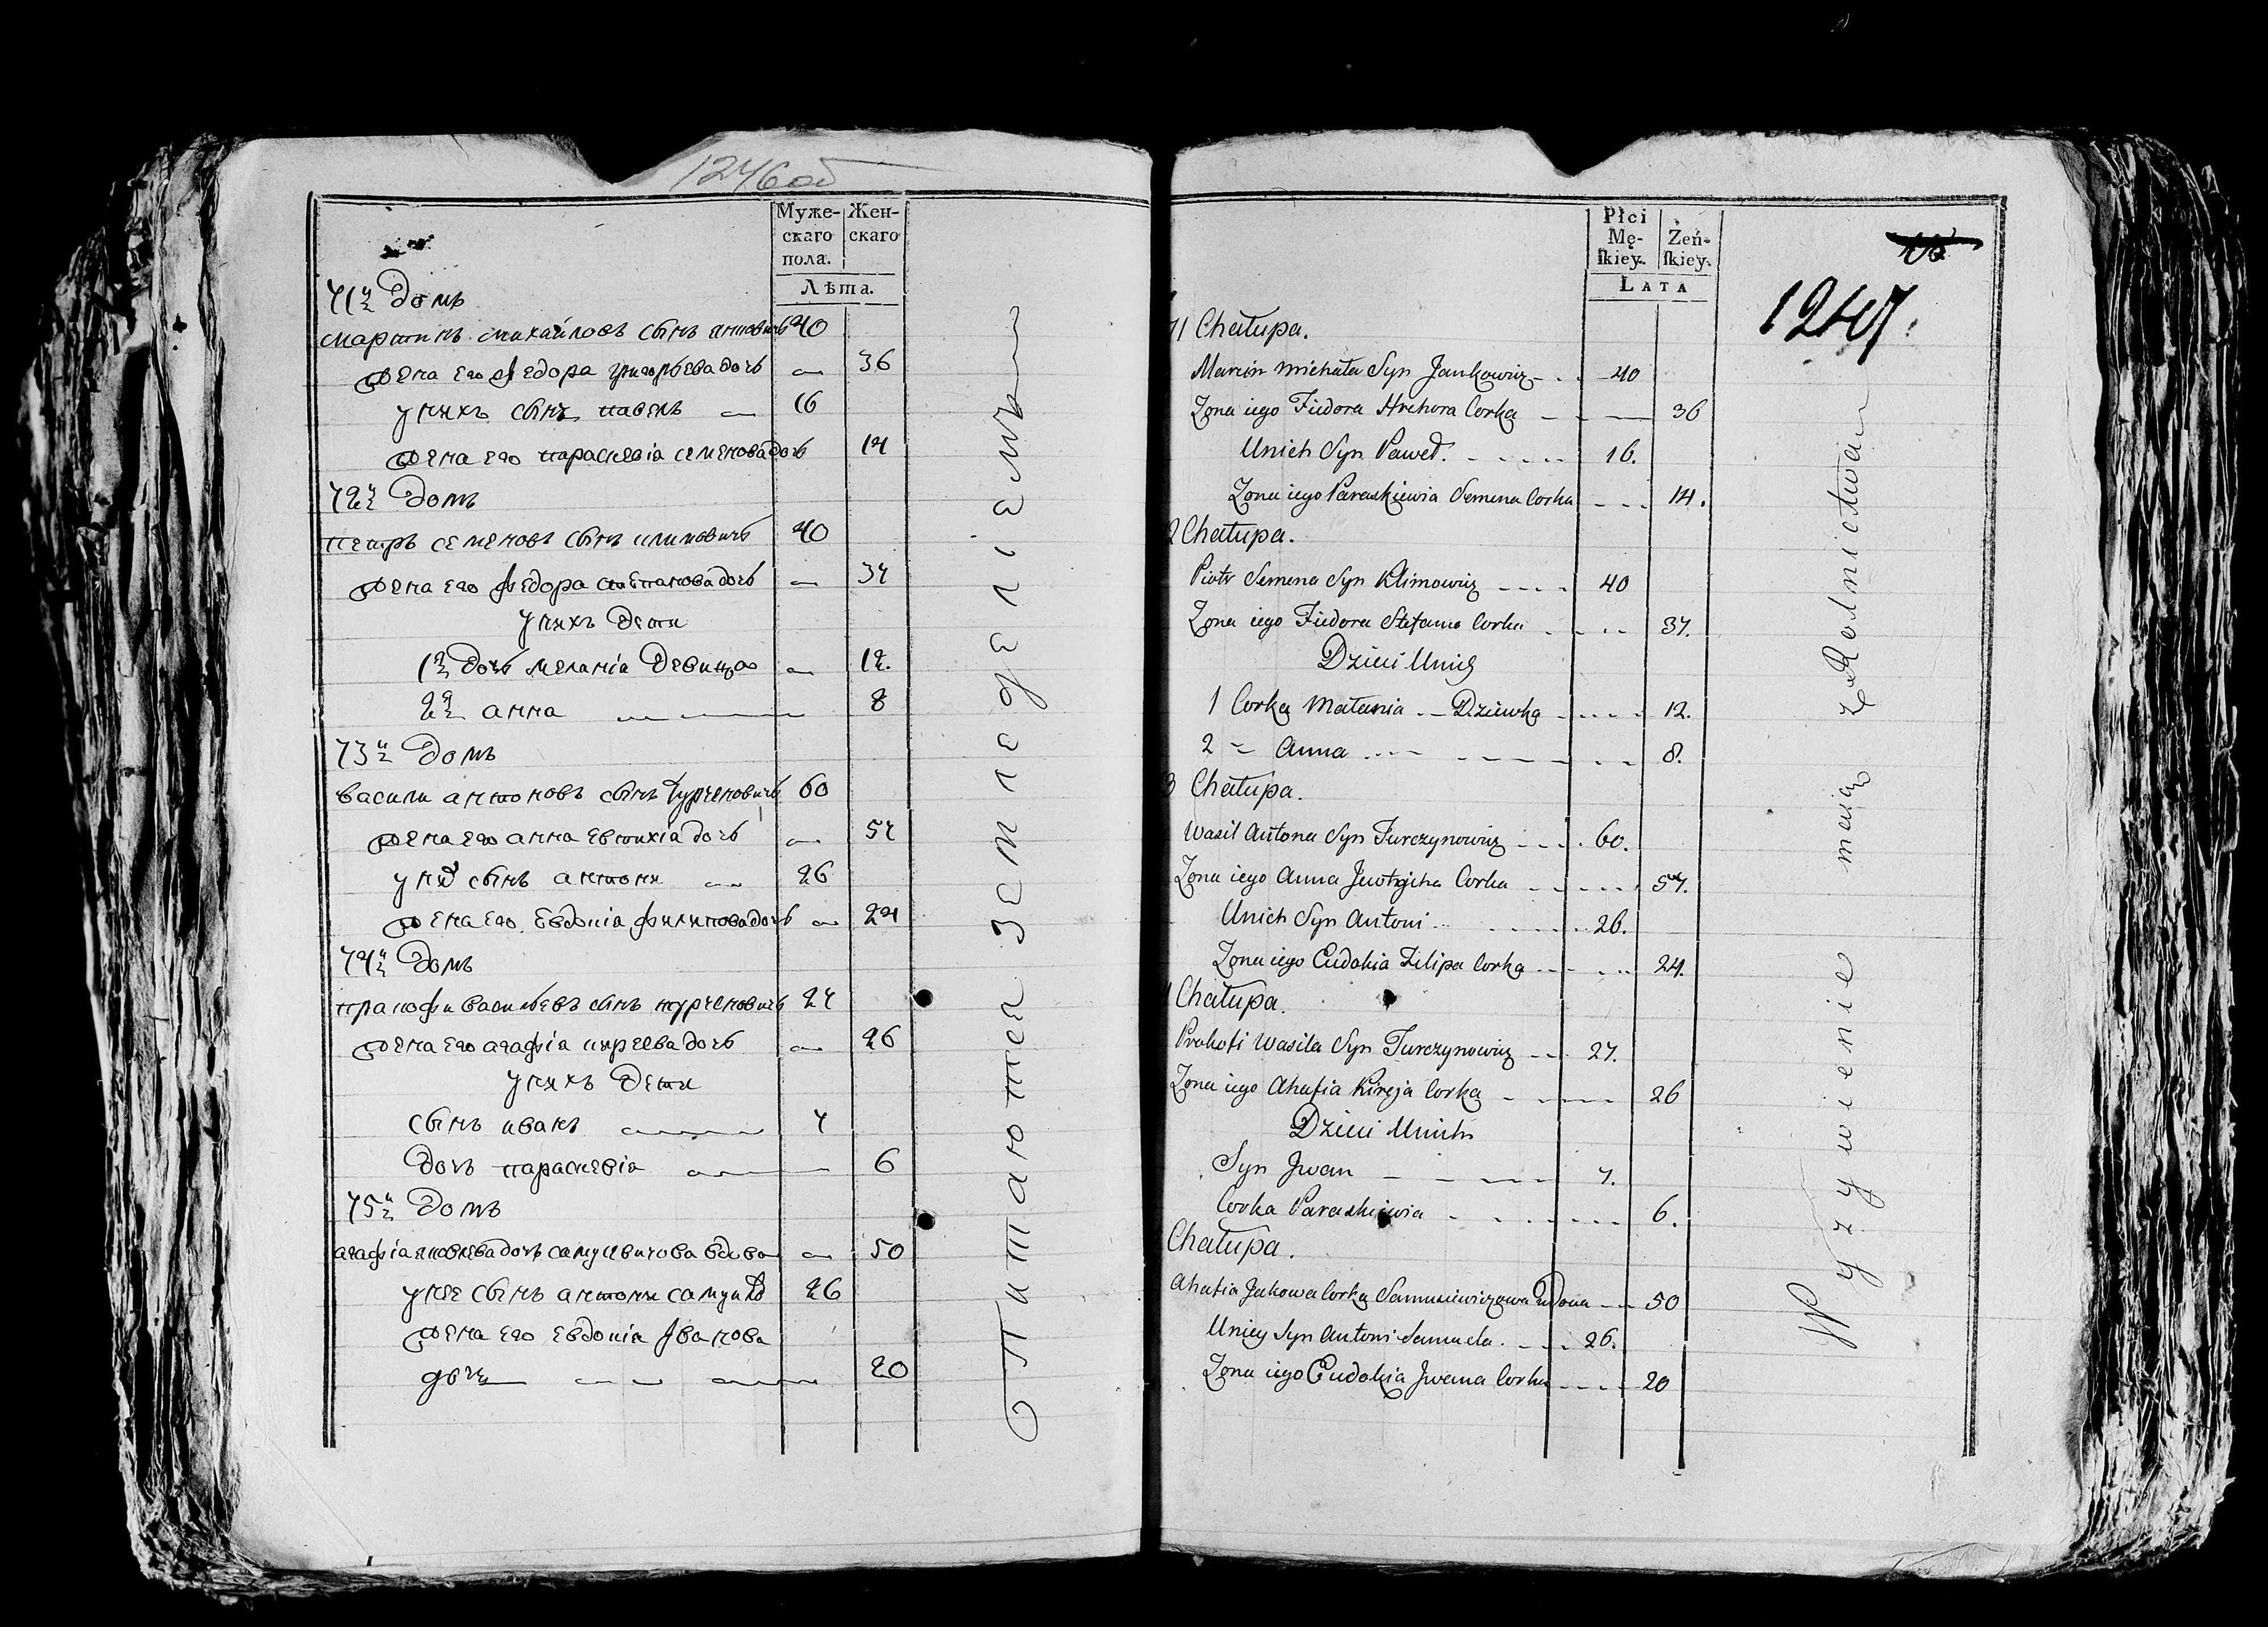 1246об
Муже-
скаго
пола.
Жен-
скаго
Лѣта.
71й Домъ
мартинъ михайловъ сынъ янковичъ 40
жена его федора григорьева дочь 36
у нихъ сынъ павелъ 16
жена его параскевіа семенова дочь 14
72й Домъ
петръ семеновъ сынъ климовичь 40
жена его федора степанова дочь 37
у нихъ дети
1я дочь меланіа девица 12.
2я анна 8
73й Домъ
василии антоновъ сынъ турченовичъ 60
жена его анна евтихіа дочь 57
сынъ антони 26
жена его евдокіа филипова дочь 24
74й Домъ
прокофи васильевъ сынъ турченовичь 27
жена его агафіа киреева дочь 26
у нихъ дети
сынъ иванъ 7
дочь параскевіа 6
75й Домъ
агафіа яковлева дочь самусевичова вдова 50
у нее сынъ антони 26
жена его евдокіа иванова
дочь 20
Питаются земледелиемъ
Płci
Mę-
ſkiey.
Żeń-
ſkiey.
LATA
1247.
71 Chałupa.
Marcin Michała Syn Jankowicz 40
Zona iego Fiedora Hrehora Corka 36
Unich Syn Paweł. 16.
Zona iego Paraskiewia Semena Corka 14.
2 Chałupa.
Piotr Semena Syn Klimowicz 40
Zona iego Fiedora Stefana Corka 37.
Dzieci Unich
1 Corka Małania Dziewka 12.
2 Anna 8.
3 Chałupa.
Wasil Antona Syn Turczynowicz 60.
Zona iego Anna Jewtycha Corka 57.
Unich Syn Antoni 26.
Zona iego Eudokia Filipa Corka 24.
Chałupa.
Prokofi Wasila Syn Turczynowicz 27.
Zona iego Ahafia Kireja Corka 26
Dzieci Unich
Syn Jwan 7.
Corka Paraskiewia 6.
Chałupa.
Ahafia Jakowa Corka Samusiewiczowa Wdowa 50
Uniey Syn Antoni Samuela. 26.
Zona iego Eudokia Jwana Corka 20
Wyzywienie maią z Rolnictwa